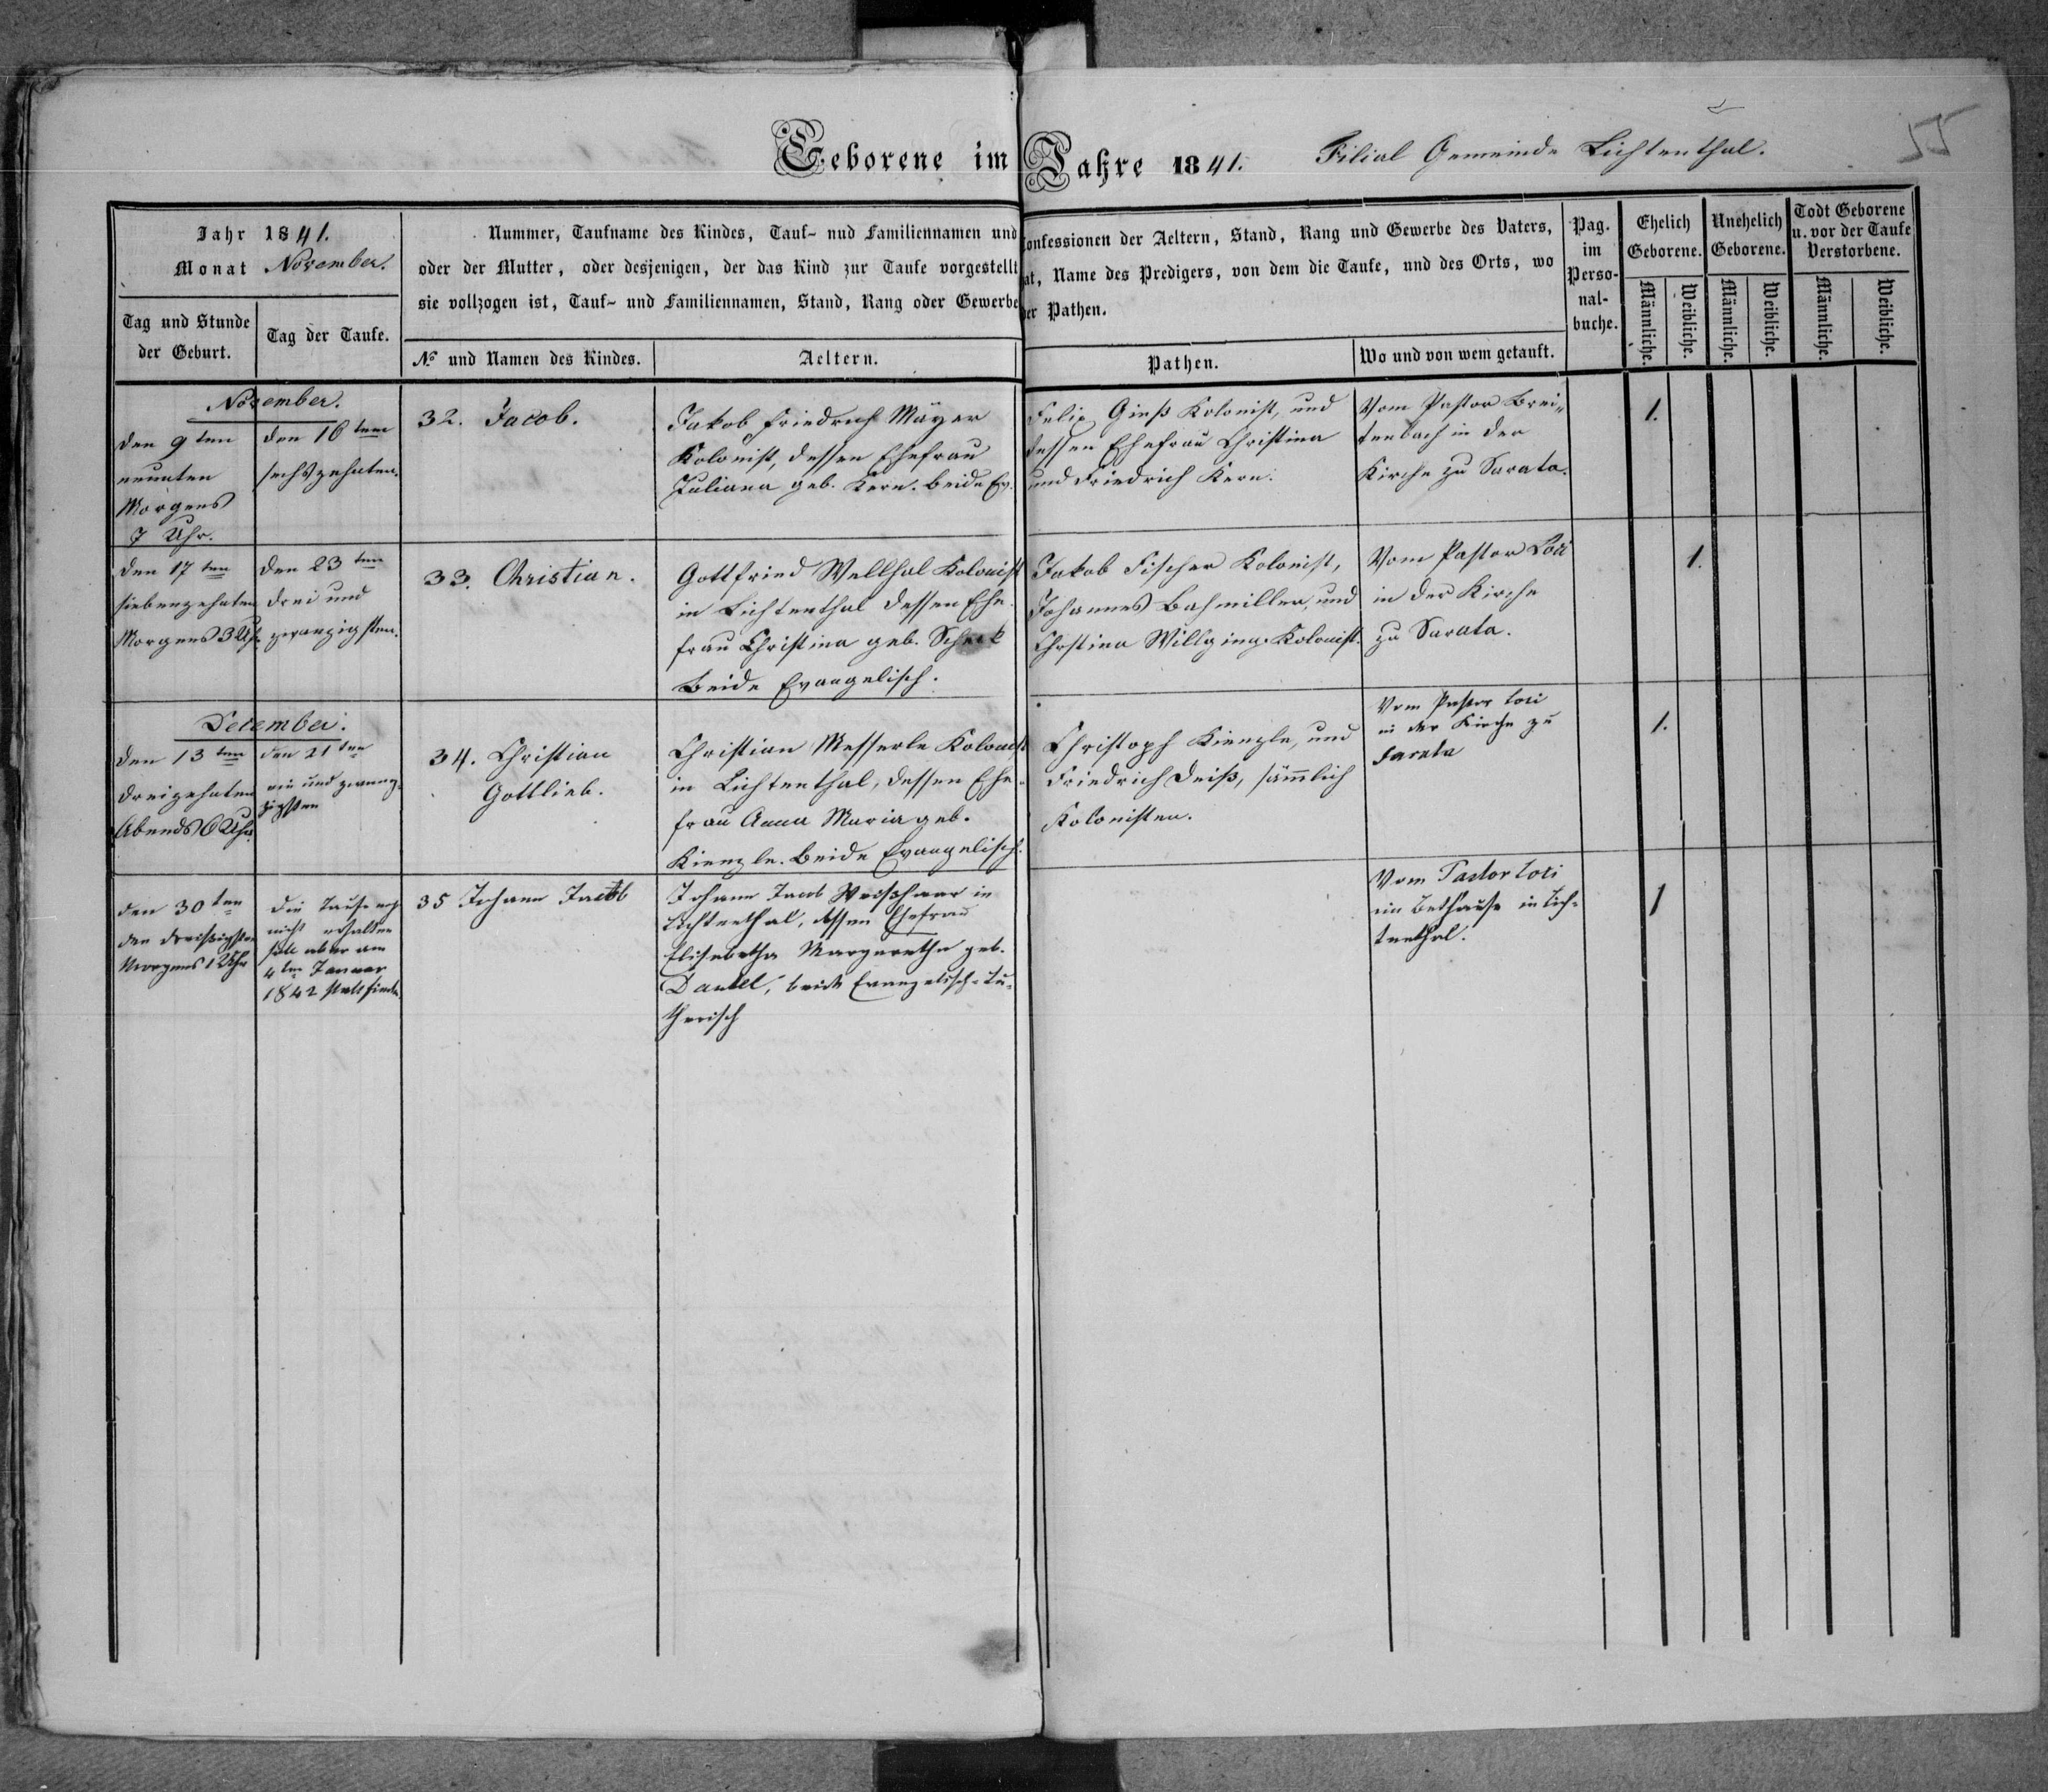 Geborene im Jahre 1841.
Filial Gemeinde Lichtenthal.
55
Jahr 1841.
Monat November.
Tag und Stunde
der Geburt.
Tag der Taufe.
Nummer, Taufname des Kindes, Tauf- nud Familiennamen und Confessionen der Aeltern, Stand, Rang und Gewerbe des Vaters,
oder der Mutter, oder desjenigen, der das Kind zur Taufe vorgestellt hat, Name des Predigers, von dem die Taufe, und des Orts, wo
sie vollzogen ist, Tauf- und Familiennamen, Stand, Rang oder Gewerbe der Pathen.
№ und Namen des Kindes.
Aeltern.
Pathen.
Wo und von wem getauft.
Pag.
im
Perso-
nal-
buche.
Ehelich
Geborene.
Unehelich
Geborene.
Todt Geborene
u. vor der Taufe
Verstorbene.
Männliche.
Weibliche.
Männliche.
Weibliche.
Männliche.
Weibliche.
November.
den 9ten
neunten
Morgens
7 Uhr.
den 16ten
sechszehnten.
32. Jacob.
Jakob Friedrich Mäyer
Kolonist, dessen Ehefrau
Juliana geb. Kern. beide Ev.
Felix Gieß Kolonist, und
dessen Ehefrau Christina
und Friedrich Kern.
Vom Pastor Brei-
tenbach in der
Kirche zu Sarata.
1.
den 17ten
siebenzehnten
Morgens 3 Uhr.
den 23ten
drei und
zwanzigsten.
33. Christian.
Gottfried Wellhal Kolonist
in Lichtenthal dessen Ehe-
frau Christina geb.
Beide Evangelisch.
Jakob Fischer Kolonist,
Johannes Bahmiller, und
Chrstina Willging. Kolonist.
Vom Pastor Lösi
in der Kirche
zu Sarata.
1.
December.
den 13ten
dreizehnten
Abends 6 Uhr.
den 21ten
ein und zwan-
zigsten
34. Christian
Gottlieb.
Christian Messerle Kolonist
in Lichtenthal, dessen Ehe-
frau Anna Maria geb.
Kienzle. Beide Evangelisch.
Christoph Kienzle, und
Friedrich Deiß, sämlich
Kolonisten.
Vom Pastor Losi
in der Kirche zu
Sarata
1.
den 30ten
den dreißigsten
Morgens 1 Uhr
die Taufe noch
nicht erhalten
soll aber am
4ten Januar
1842 stattfinden
35 Johann Jacob
Johann Jacob Weisshaar in
Lichtenthal, dessen Ehefrau
Elisabetha Margaretha geb.
Daniel, beide Evangelisch-Lu-
therisch
Vom Pastor Losi
im Bethause in Lich-
tenthal.
1